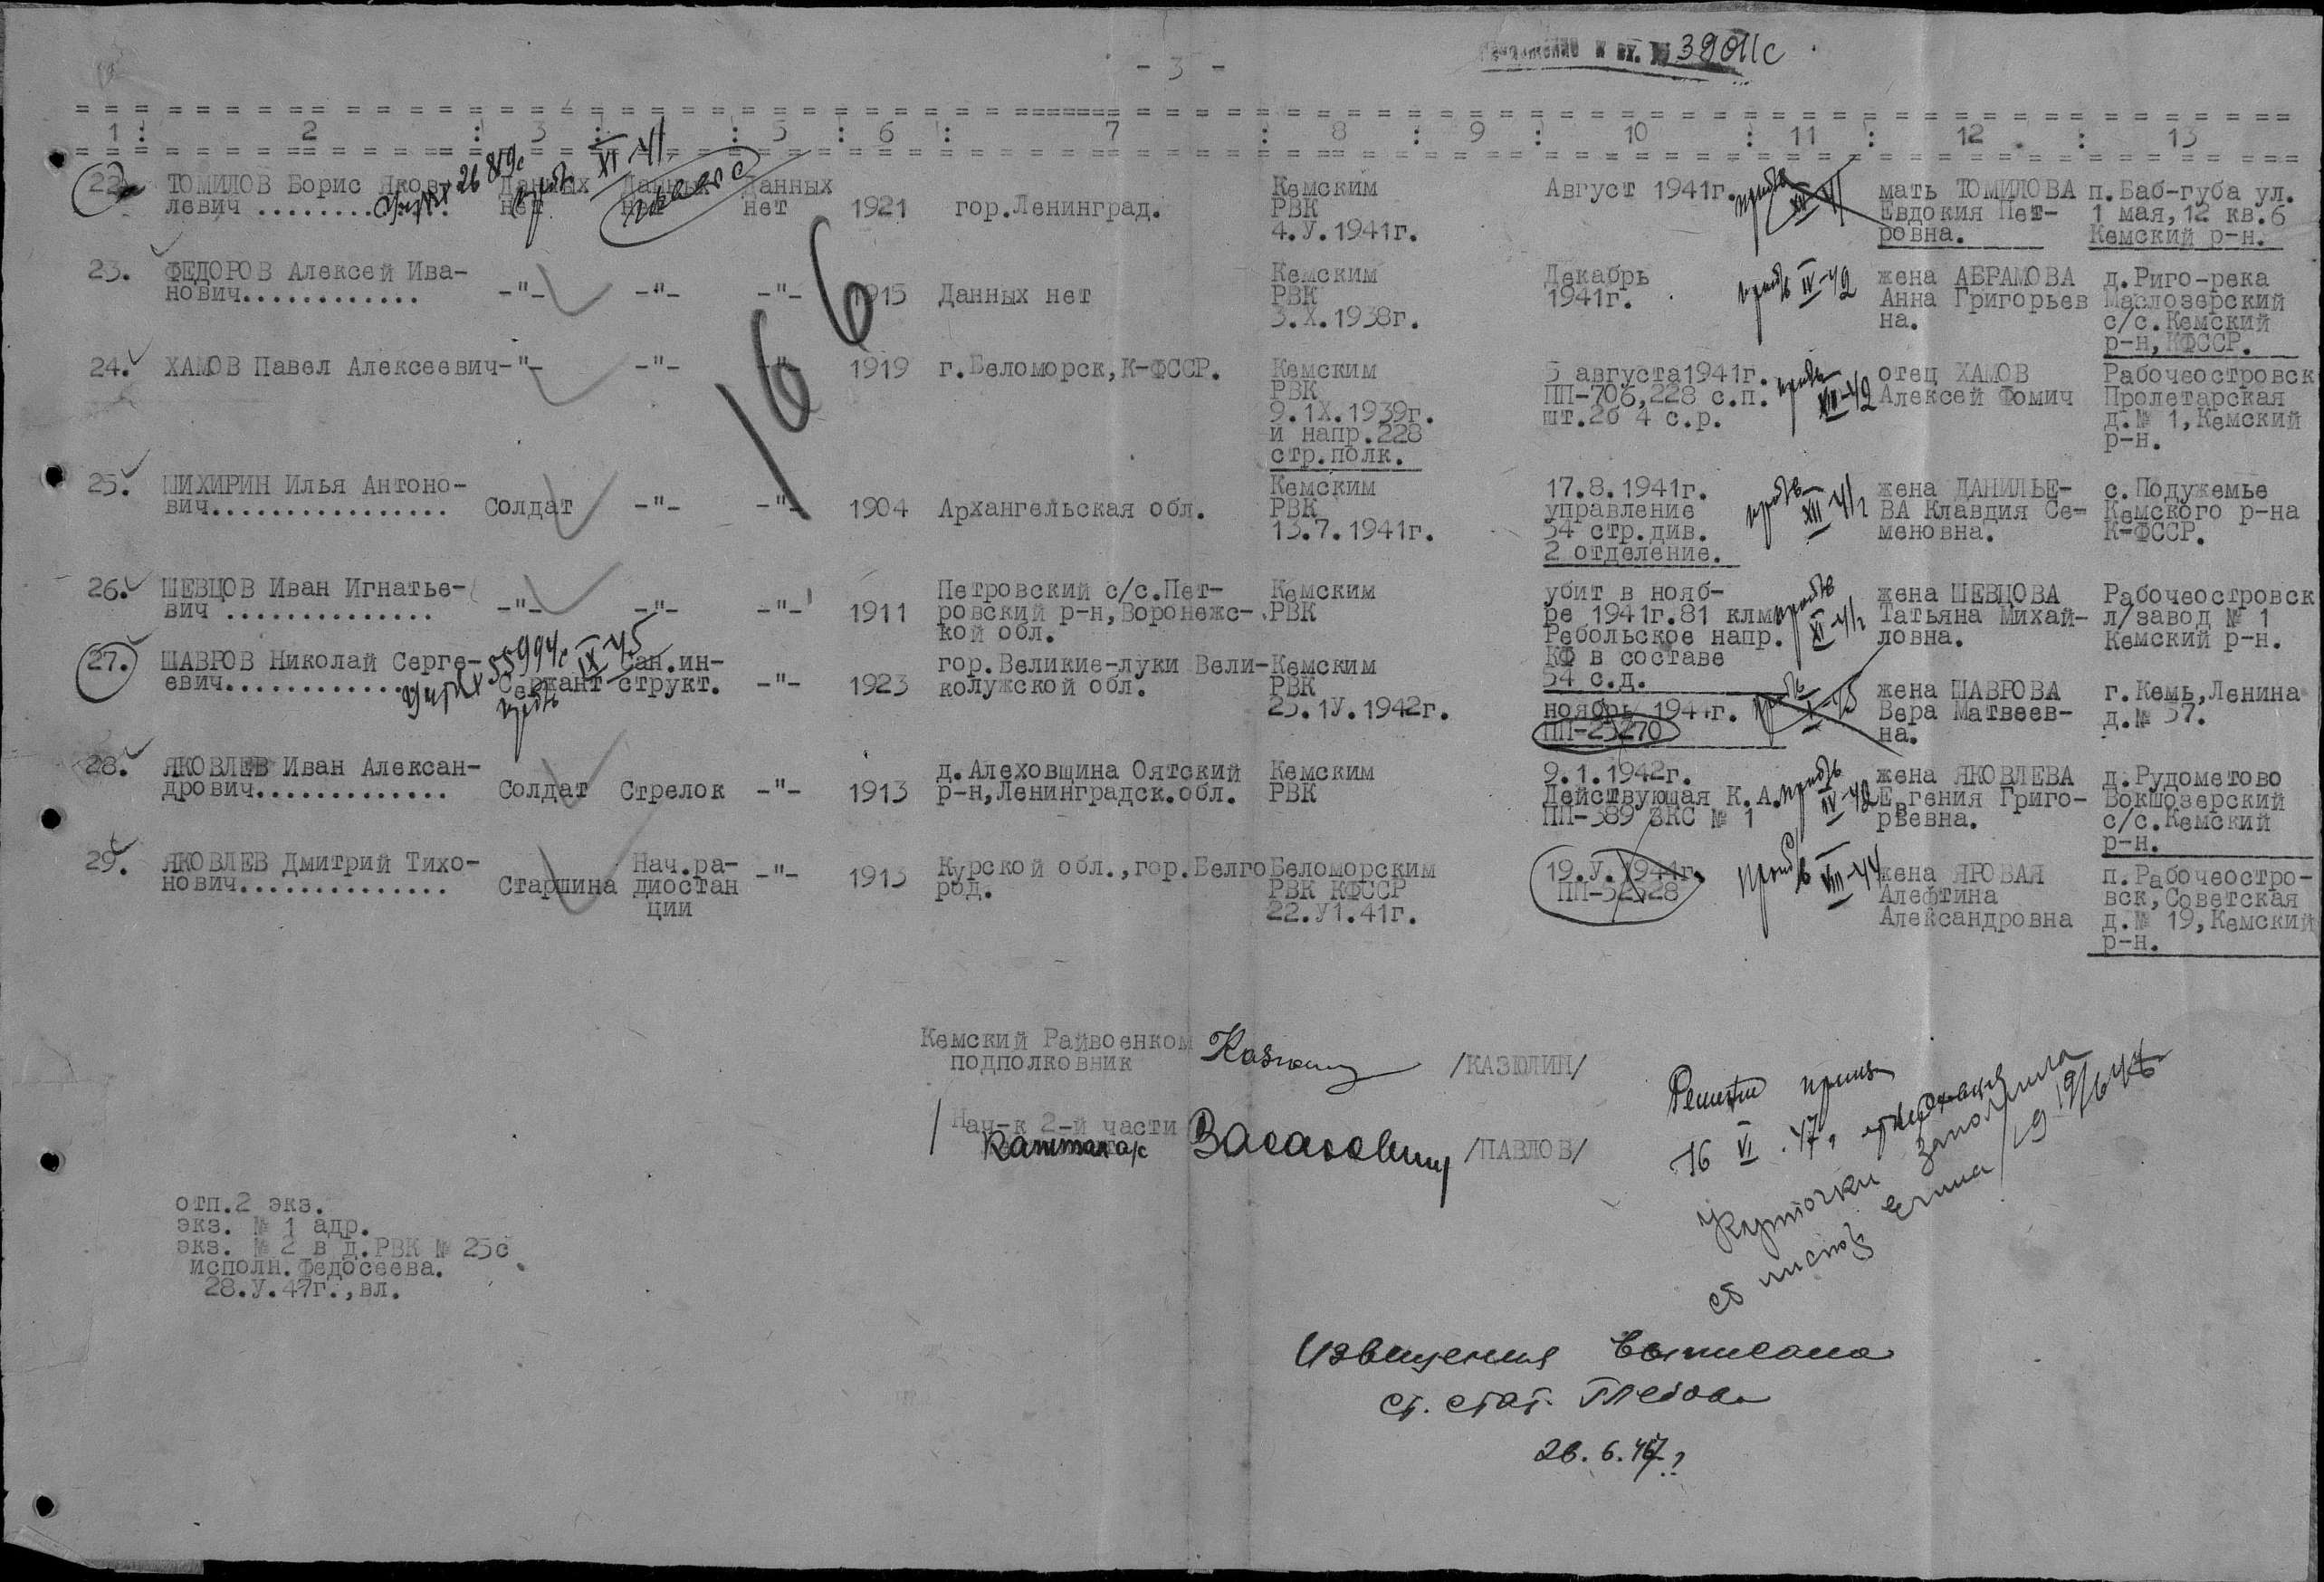 - 3 -
к вх. № 39011с
1 : 2 : 3 : : 5 : 6 : 7 : 8 : 9 : 10 : 11 : 12 : 13
22. ТОМИЛОВ Борис Яков-
левич ............
26819с
Данных
нет
XI-41
Данных
нет
Данных
нет
1921
гор.Ленинград.
Кемским
РВК
4.У.1941г.
Август 1941г.
мать ТОМИЛОВА
Евдокия Пет-
ровна.
п.Баб-губа ул.
1 мая,12 кв.6
Кемский р-н.
166
23. ФЕДОРОВ Алексей Ива-
нович.............
-"- -"- -"-
1915
Данных нет
Кемским
РВК
3.X.1938г.
Декабрь
1941г.
IV-42
жена АБРАМОВА
Анна Григорьев
на.
д.Риго-река
Маслозерский
с/с.Кемский
р-н,КФССР.
24. ХАМОВ Павел Алексеевич
-"- -"- -"-
1919
г.Беломорск,К-ФССР.
Кемским
РВК
9.1X.1939г.
и напр.228
стр.полк.
5 августа1941г.
ПП-706,228 с.п.
шт.2б 4 с.р.
XII-42
отец ХАМОВ
Алексей Фомич
Рабочеостровск
Пролетарская
д.№ 1,Кемский
р-н.
25. ШИХИРИН Илья Антоно-
вич.................
Солдат -"- -"-
1904
Архангельская обл.
Кемским
РВК
13.7.1941г.
17.8.1941г.
управление
54 стр.див.
2 отделение.
XII-41г
жена ДАНИЛЬЕ-
ВА Клавдия Се-
меновна.
с.Подужемье
Кемского р-на
К-ФССР.
26. ШЕВЦОВ Иван Игнатье-
вич ...............
-"- -"- -"-
1911
Петровский с/с.Пет-
ровский р-н,Воронежс-
кой обл.
Кемским
РВК
убит в нояб-
ре 1941г.81 клм
Ребольское напр.
КФ в составе
54 с.д.
XI-41г
жена ШЕВЦОВА
Татьяна Михай-
ловна.
Рабочеостровск
л/завод № 1
Кемский р-н.
27. ШАВРОВ Николай Серге-
евич.............
55994с
IX-45
Сержант
Сан.ин-
структ.
-"-
1923
гор.Великие-луки Вели-
колужской обл.
Кемским
РВК
25.1У.1942г.
ноябрь 1944г.
ПП-25270
жена ШАВРОВА
Вера Матвеев-
на.
г.Кемь,Ленина
д.№ 57.
28. ЯКОВЛЕВ Иван Алексан-
дрович.............
Солдат Стрелок -"-
1913
д.Алеховщина Оятский
р-н,Ленинградск.обл.
Кемским
РВК
9.1.1942г.
Действующая К.А.
ПП-389 ЗКС № 1
IV-42
жена ЯКОВЛЕВА
Евгения Григо-
рьевна.
д.Рудометово
Вокшозерский
с/с.Кемский
р-н.
29. ЯКОВЛЕВ Дмитрий Тихо-
нович..............
Старшина
Нач.ра-
диостан
ции
-"-
1913
Курской обл.,гор.Белго
род.
Беломорским
РВК КФССР
22.У1.41г.
19.У.1944г.
ПП-32528
VIII-44
жена ЯРОВАЯ
Алефтина
Александровна
п.Рабочеостро-
вск,Советская
д.№ 19,Кемский
р-н.
Кемский Райвоенком
подполковник
/КАЗЮЛИН/
Нач-к 2-й части
Капитан а/с
/ПАВЛОВ/
16 VI.47г
карточки заполнила
19/6 47г
отп.2 экз.
экз. № 1 адр.
экз. № 2 в д.РВК № 25с
исполн.Федосеева.
28.У.47г.,вл.
Извещения выписала
ст. стат. Глебова
28.6.47г.